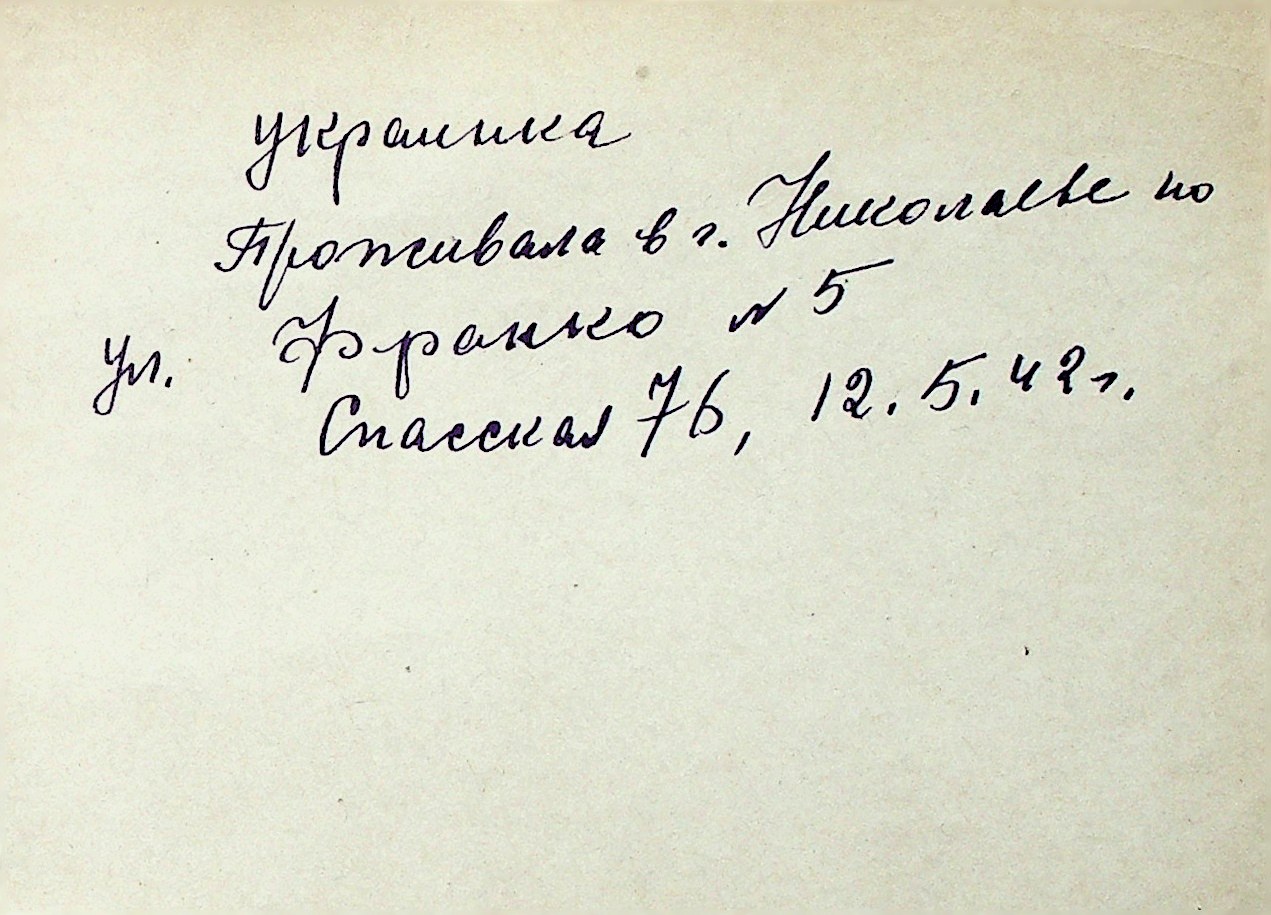 украинка
Проживала в г. Николаеве по
ул. Франко № 5
Спасская 76, 12.5.42г.